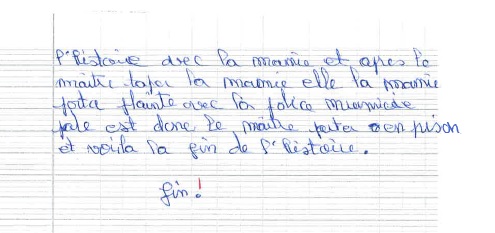 l'histoire avec la mamie et apres le
maitre taper la mamie elle la mamie
porter plainte avec la police municide
pale est donc le maitre porter en prison
et voila la fin de l'histoire.
fin !